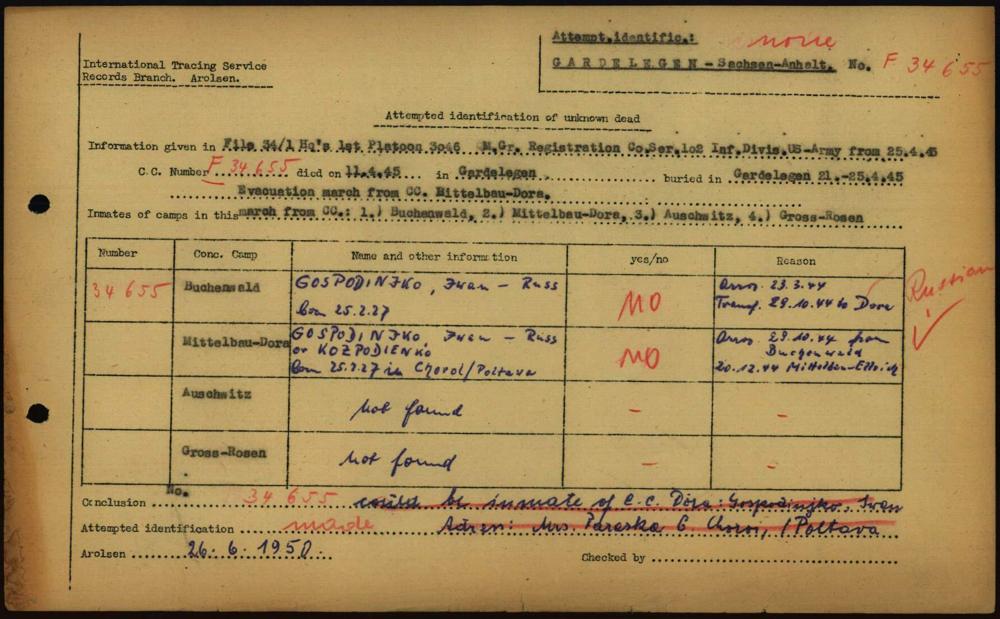 Attempt.identific.: none
International Tracing Service
Records Branch. Arolsen.
GARDELEGEN - Sachsen-Anhalt. No. F 34 655
Attempted identification of unknown dead
Information given in File 54/1 Hq's 1st Platoon 3046 M.Gr. Registration Co.Ser.102 Inf.Divis.US-Army from 25.4.45
C.C. Number F 34 655 died on 11.4.45 in Gardelegen buried in Gardelegen 21.-25.4.45
Evacuation march from CC. Mittelbau-Dora.
Inmates of camps in this march from CC.: 1.) Buchenwald, 2.) Mittelbau-Dora, 3.) Auschwitz, 4.) Gross-Rosen
Number Conc. Camp Name and other information yes/no Reason
34 655 Buchenwald GOSPODINJKO, Iwan - Russ
born 25.2.27
NO
Arrv. 29.3.44
Transf. 29.10.44 to Dora
Russian
Mittelbau-Dora GOSPODINJKO, Iwan - Russ
or KOZPODIENKO
born 25.2.27 in Chorol/Poltava
NO
Arrv. 29.10.44 from
Buchenwald
20.12.44 Mittelbau-Ellrich
Auschwitz not found - -
Gross-Rosen not found - -
Conclusion No. 34 655 could be inmate of C.C. Dora: Gospodinjko, Iwan
Attempted identification made Adress: Mrs. Paraska G. /Poltava
Arolsen 26.6.1950. Checked by